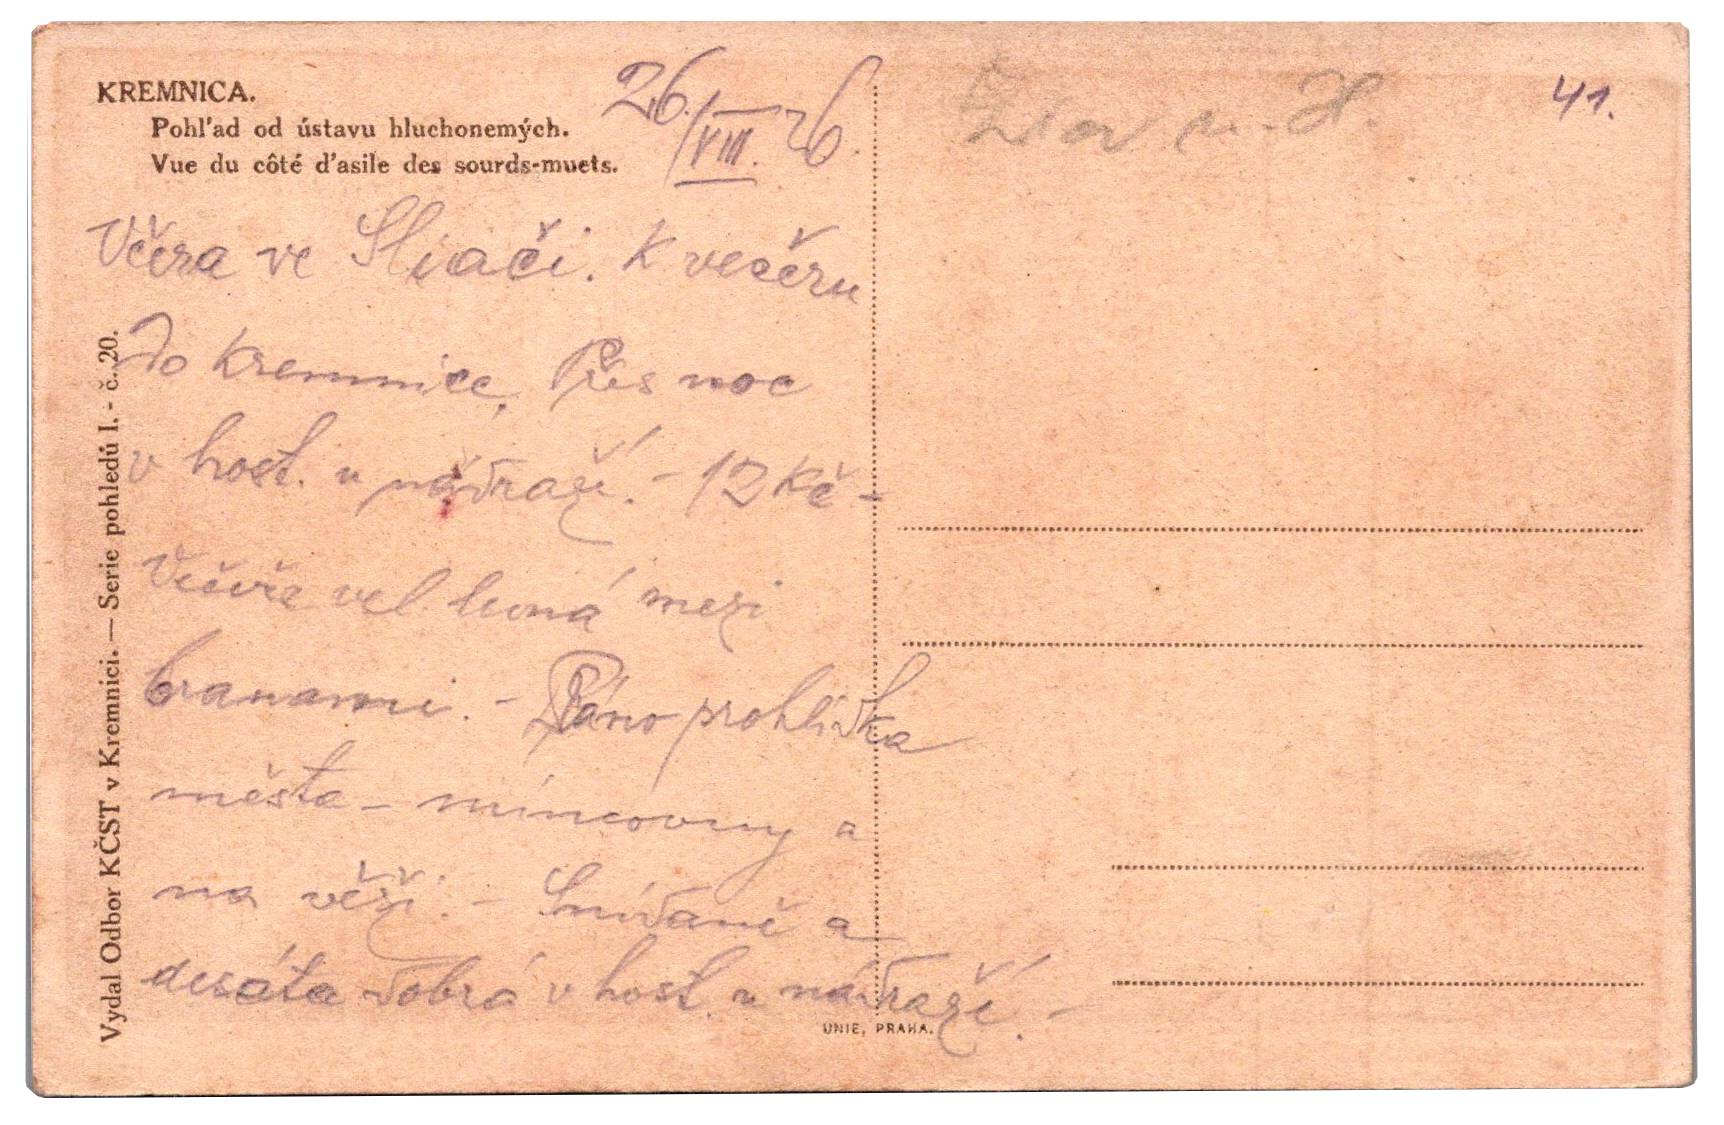 KREMNICA.
Pohl'ad od ústavu hluchonemých.
Vue du côté d'asile des sourds-muets.
26./VIII. 26.
Včera ve Sliači. K večeru
do Kremnice. Přes noc
v host. u nádraží. - 12 Kč -
Večeře mezi
branami. - Ráno prohlídka
města - mincovny a
na věži. - Snídaně a
desáta dobrá v host. u nádraží. -
Vydal Odbor KČST v Kremnici. — Serie pohledů I. - č. 20.
UNIE, PRAHA.
41.